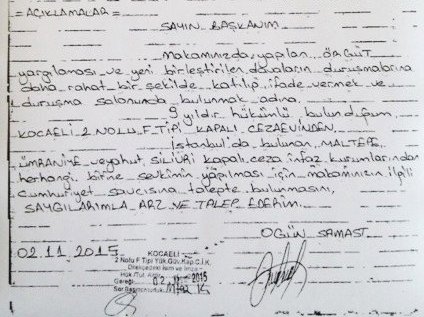 = AÇIKLAMALAR =
SAYIN BAŞKANIM
Makamınızda yapılan, ÖRGÜT
yargılaması ve yeni birleştirilen davaların duruşmalarına
daha rahat bir şekilde katılıp, ifade vermek ve
duruşma salonunda bulunmak adına.
9 yıldır hükümlü bulunduğum
KOCAELİ 2 NOLU F TİPİ KAPALI CEZAEVİNDEN,
İstanbul'da bulunan, MALTEPE
ÜMRANİYE veyahut, SİLİVRİ kapalı ceza infaz kurumlarından
herhangi birine sevkimin yapılması için makamınızın ilgili
cumhuriyet savcısına talepte bulunmasını,
SAYGILARIMLA ARZ VE TALEP EDERİM.
OGÜN SAMAST
02.11.2015
KOCAELİ
2 Nolu F Tipi Yük.Güv.Kap.C.İ.K.
Dilekçedeki İsim ve İmza
Hük./Tut.
02 2015